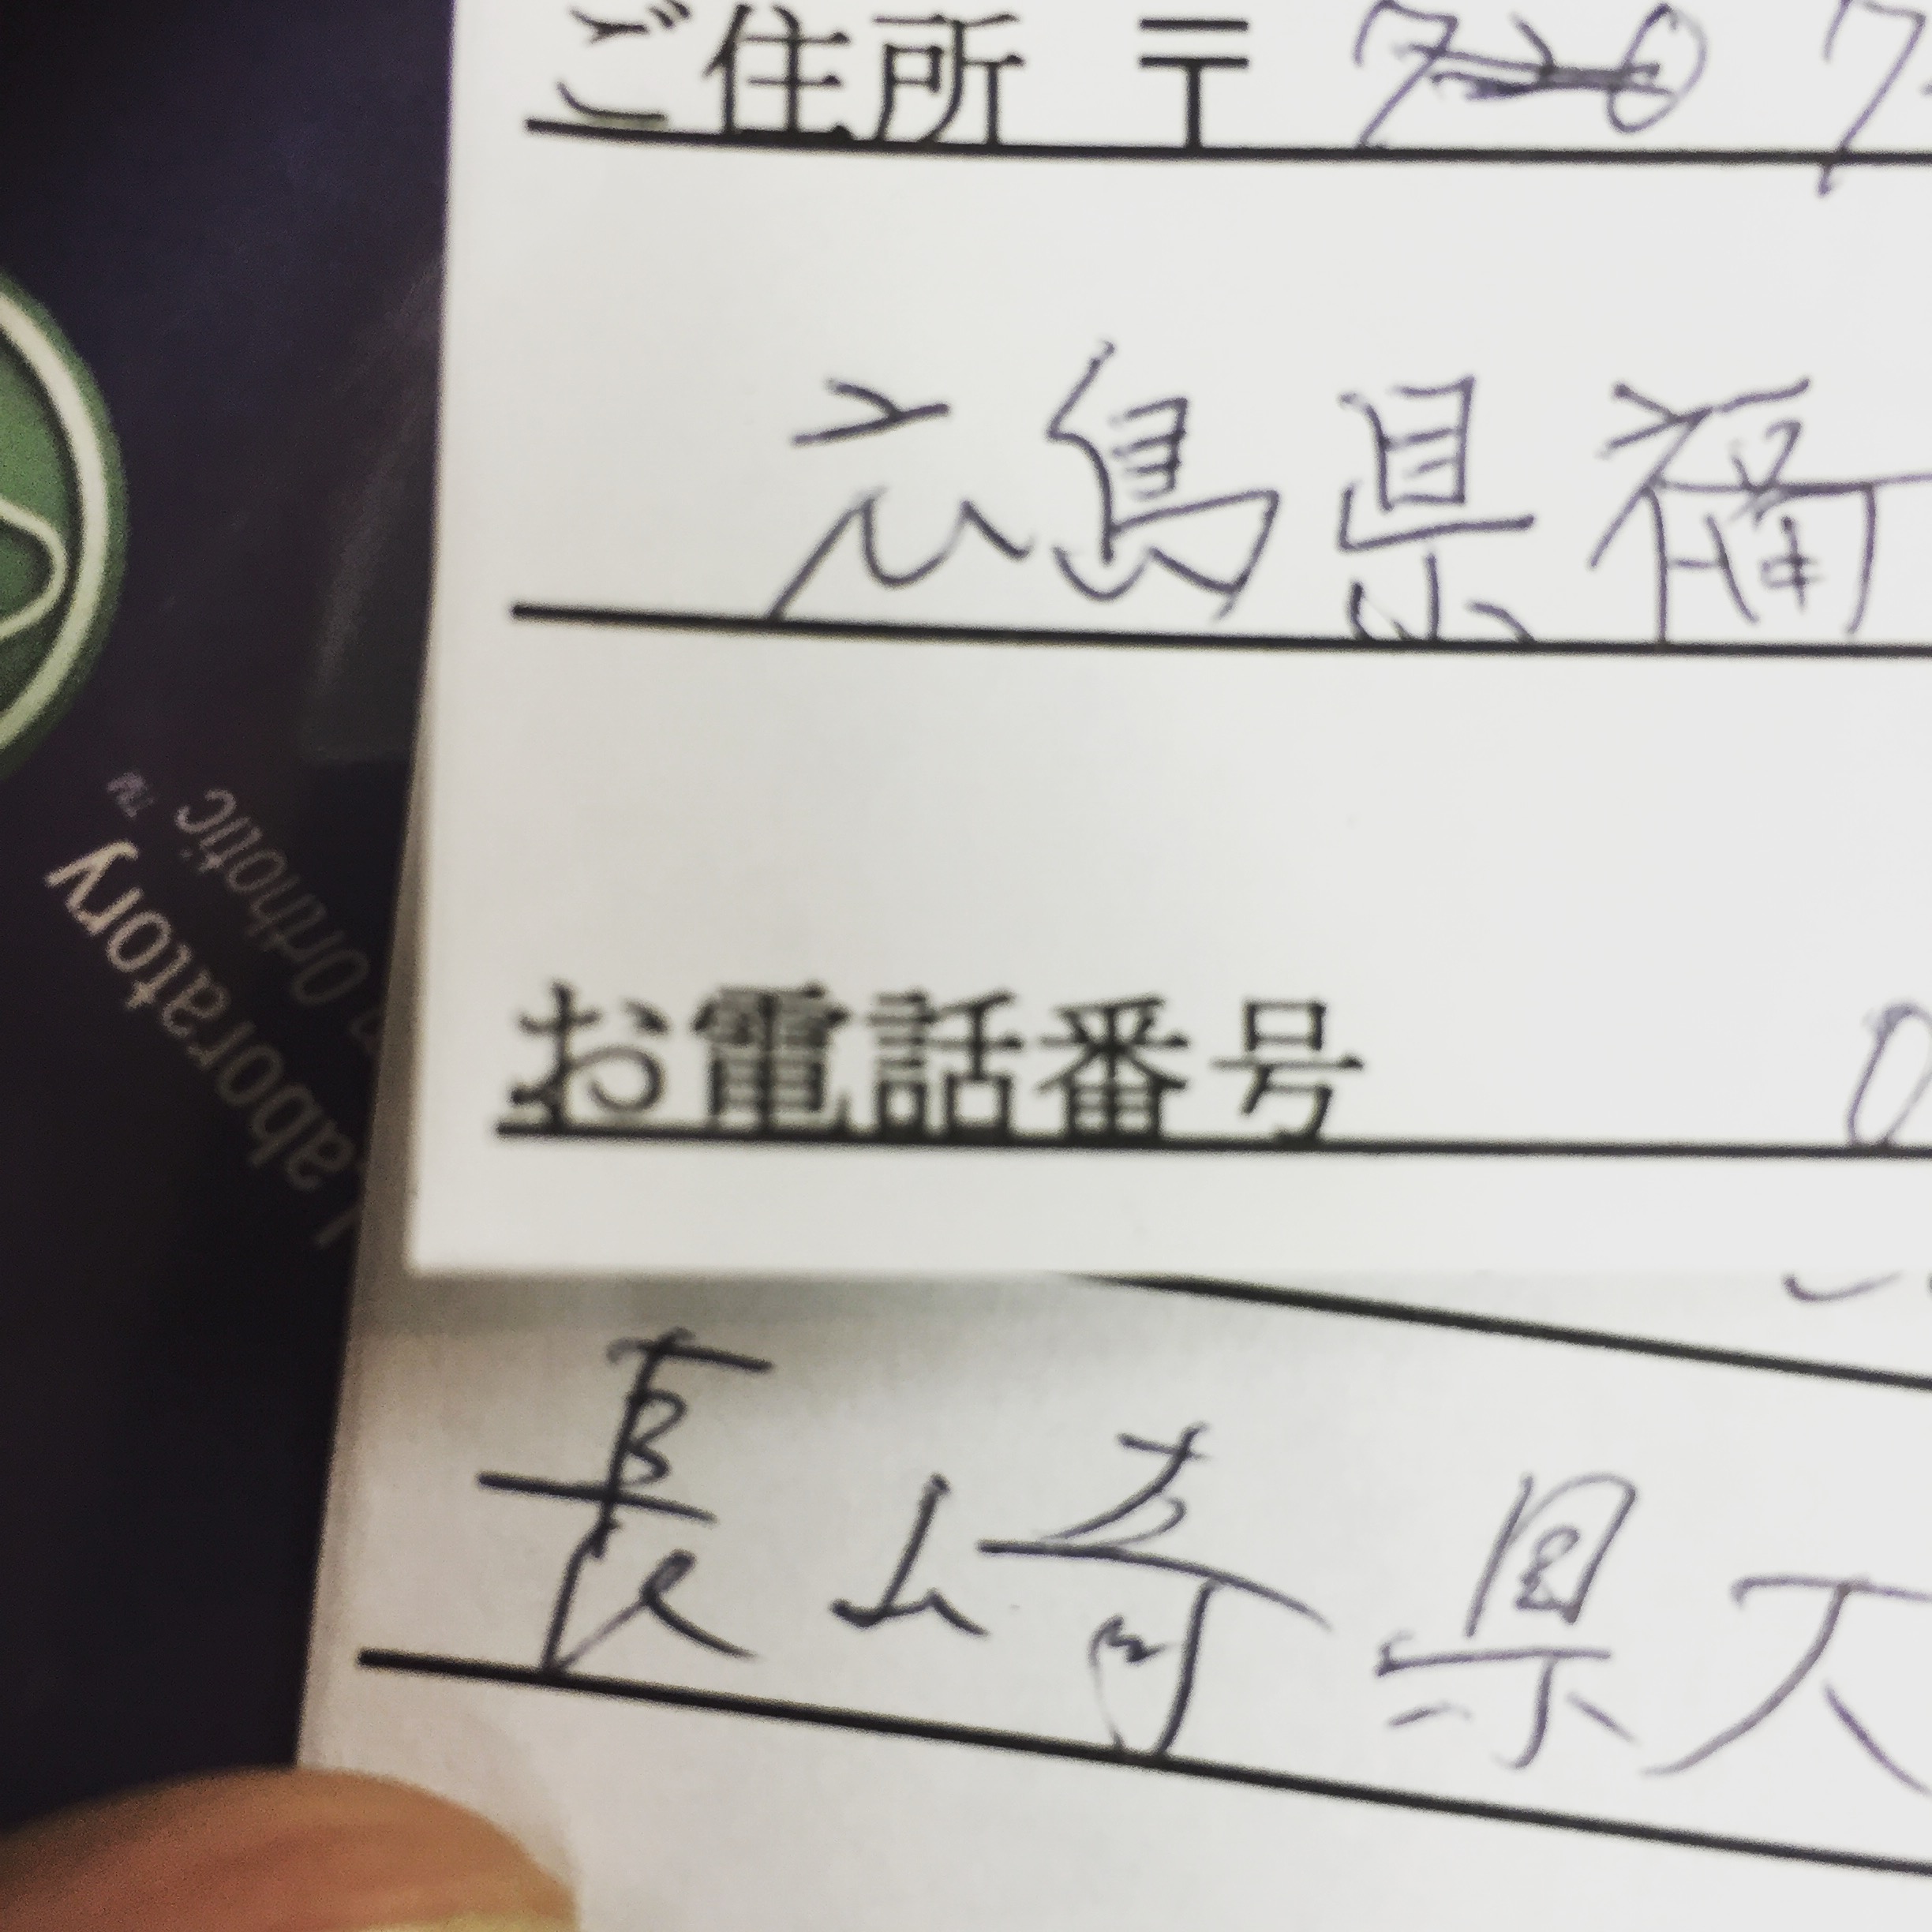 ご住所 〒 7
広島県福
お電話番号 0
長崎県大
Laboratory
Orthotic™